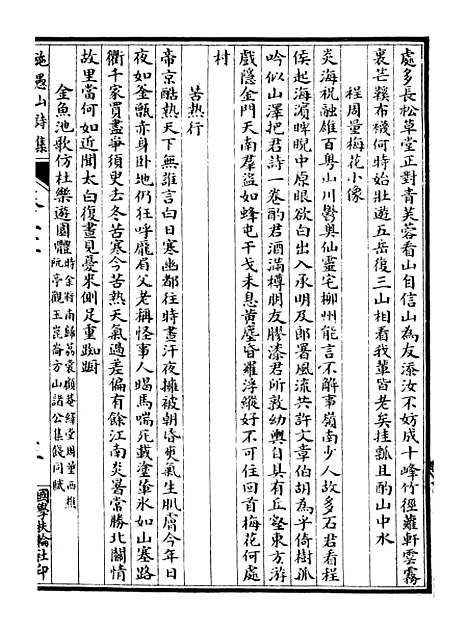 處多長松草堂正對青芙蓉看山自信山為友添汝不妨成十峰竹徑蘿軒雲霧
裏芒鞵布襪何時始壯遊五岳復三山相看我輩皆老矣挂瓢且酌山中水
程周量梅花小像
炎海祝融雄百粵山川鬱奧仙靈宅柳州能言不解事嶺南少人故多石君看程
侯起海濵睥睨中原眼欲白出入承明及郎署風流共許文章伯胡為乎倚樹孤
吟似山澤把君詩一卷酌君酒滿樽朋友膠漆君所敦幼輿自具有丘壑東方游
戲隱金門天南羣盜如蜂屯干戈未息黄塵昏羅浮縱好不可住回首梅花何處
村
苦熱行
帝京酷熱天下無誰言白日寒幽都往時晝汗夜擁被朝昏爽氣生肌膚今年日
夜如金甑赤身卧地仍狂呼龎眉父老稱怪事人暍馬喘死載塗篳氷如山塞路
衢千家買盡爭須臾去冬苦寒今苦熱天氣過差偏有餘江南炎暑常勝北關情
故里當何如近聞太白復晝見憂來側足重踟蹰
金魚池歌仿杜樂遊園體
時金粟南歸荔裳顧菴繹堂周量西樵
阮亭觀王崑崙方山諸公集餞同賦
施愚山詩集
國學扶輪社印